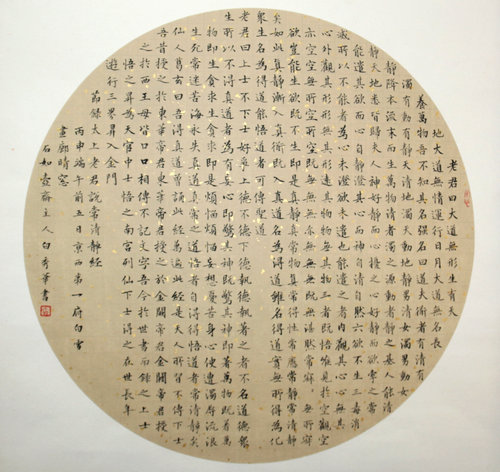 老君曰大道無形生育天
地大道無情運行日月大道無名長
養萬物吾不知其名强名曰道夫衜者有清有
濁有動有靜天清地濁天動地靜男清女濁男動女
靜降本流末而生萬物清者濁之源動者靜之基人能清
靜天地悉皆歸夫人神好靜而心擾之心好靜而欲牽之常
能遣其欲而心自靜澄其心而神自清自然六欲不生三毒消
滅所以不能者為心未澄欲未遣也能遣之者内觀其心心無其
心外觀其形形無其形遠觀其物物無其物三者既悟唯見於空觀空
亦空空無所空所空既無無無亦無無無既無湛然常寂無所寂
欲豈能生欲既不生即是真靜真常應物真常得性常應常靜常清靜
矣如此真靜漸入真衜既入真道名為得道雖名得道實無所得為化
眾生名為得道能悟道者可傳聖道
老君曰上士不下士好爭上德不德下德執德執著之者不名道德眾
生所以不得真道者為有妄心即驚其神既驚其神即著萬物既著萬
物即生貪求生貪求即是煩惱煩惱妄想憂苦身心便遭濁辱流浪
生死常迷苦海永失真道真常之道悟者自得得悟道者常清靜矣
仙人葛玄曰吾得真道曾誦此經萬遍此經是天人所習不傳下士
吾昔授之於東華帝君東華帝君授之於金闕帝君金闕帝君授
之於西王母皆口口相傳不記文字吾今於世書而錄之上士
悟之昇為天官中士悟之南宫列仙下士得之在世長年
遊行三界昇入金門
節錄太上老君說常清靜經
丙申端午前五日京西第一府白雪
畫廊晴窓
石如齋主人白秀華書